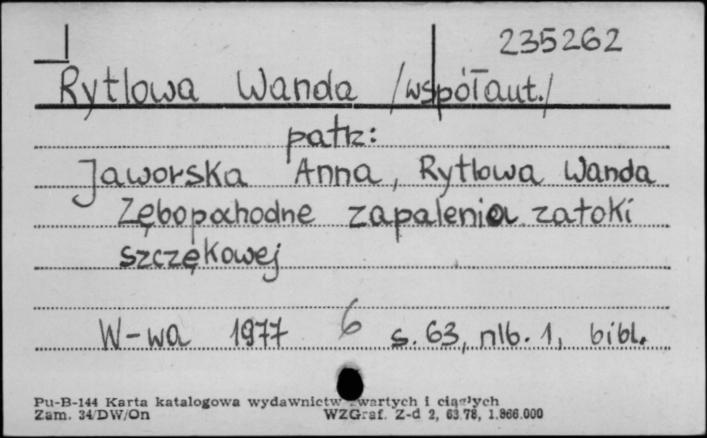 235262
Rytlowa Wanda /współaut./
patrz:
Jaworska Anna, Rytlowa Wanda
Zębopochodne zapalenia zatoki
szczękowej
W-wa 1977 6 s. 63, nlb. 1, bibl.
Pu-B-144 Karta katalogowa wydawnictw zwartych i ciągłych
Zam. 34/DW/On WZGraf. Z-d 2, 63.78, 1.866.000